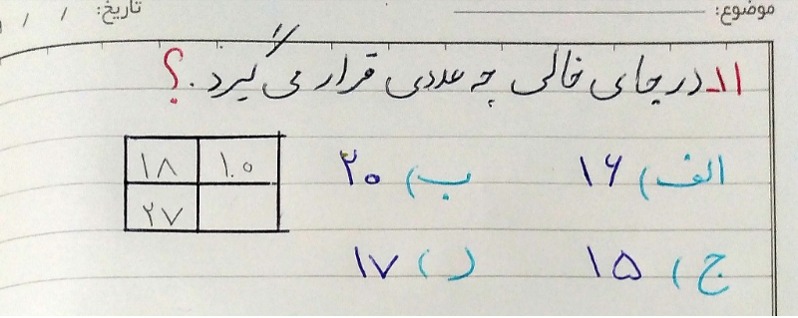 موضوع: تاریخ: / /
۱۱ـ در جای خالی چه عددی قرار می گیرد. ؟
الف) ۱۶ ب) ۲۰
۱۸ ۱۰
۲۷
ج) ۱۵ د) ۱۷